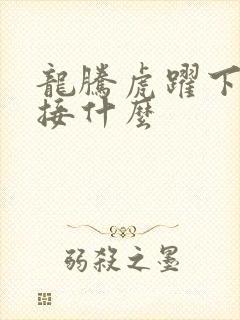 龍騰虎躍下
接什麼
弱殺之墨